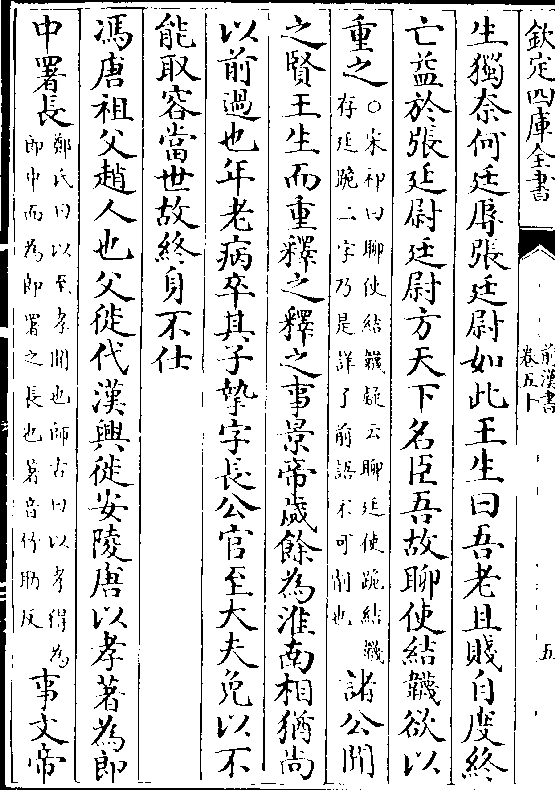 欽定四庫全書
前漢書
卷五十
五
生獨奈何廷辱張廷尉如此王生曰吾老且賤自度終
亡益於張廷尉廷尉方天下名臣吾故聊使結韈欲以
重之
○宋祁曰聊使結韈疑云聊廷使跪結韈
存廷跪二字乃是詳了前語不可削也
諸公聞
之賢王生而重釋之釋之事景帝歲餘為淮南相猶尚
以前過也年老病卒其子摯字長公官至大夫免以不
能取容當世故終身不仕
馮唐祖父趙人也父徙代漢興徙安陵唐以孝著為郎
中署長
鄭氏曰以至孝聞也師古曰以孝得為
郎中而為郎署之長也著音竹助反
事文帝